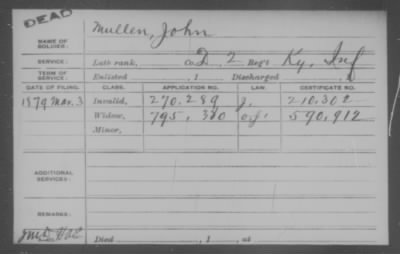 DEAD
Mullen, John
NAME OF SOLDIER:
SERVICE: Late rank, Co. D, 2 Reg't Ky. Inf
TERM OF SERVICE: Enlisted , 1 Discharged , 1
DATE OF FILING. CLASS. APPLICATION NO. LAW. CERTIFICATE NO.
1879 Mar. 3 Invalid, 270.289 210.302
Widow, 795,380 590,912
Minor,
ADDITIONAL SERVICES:
REMARKS:
Died , 1 , at